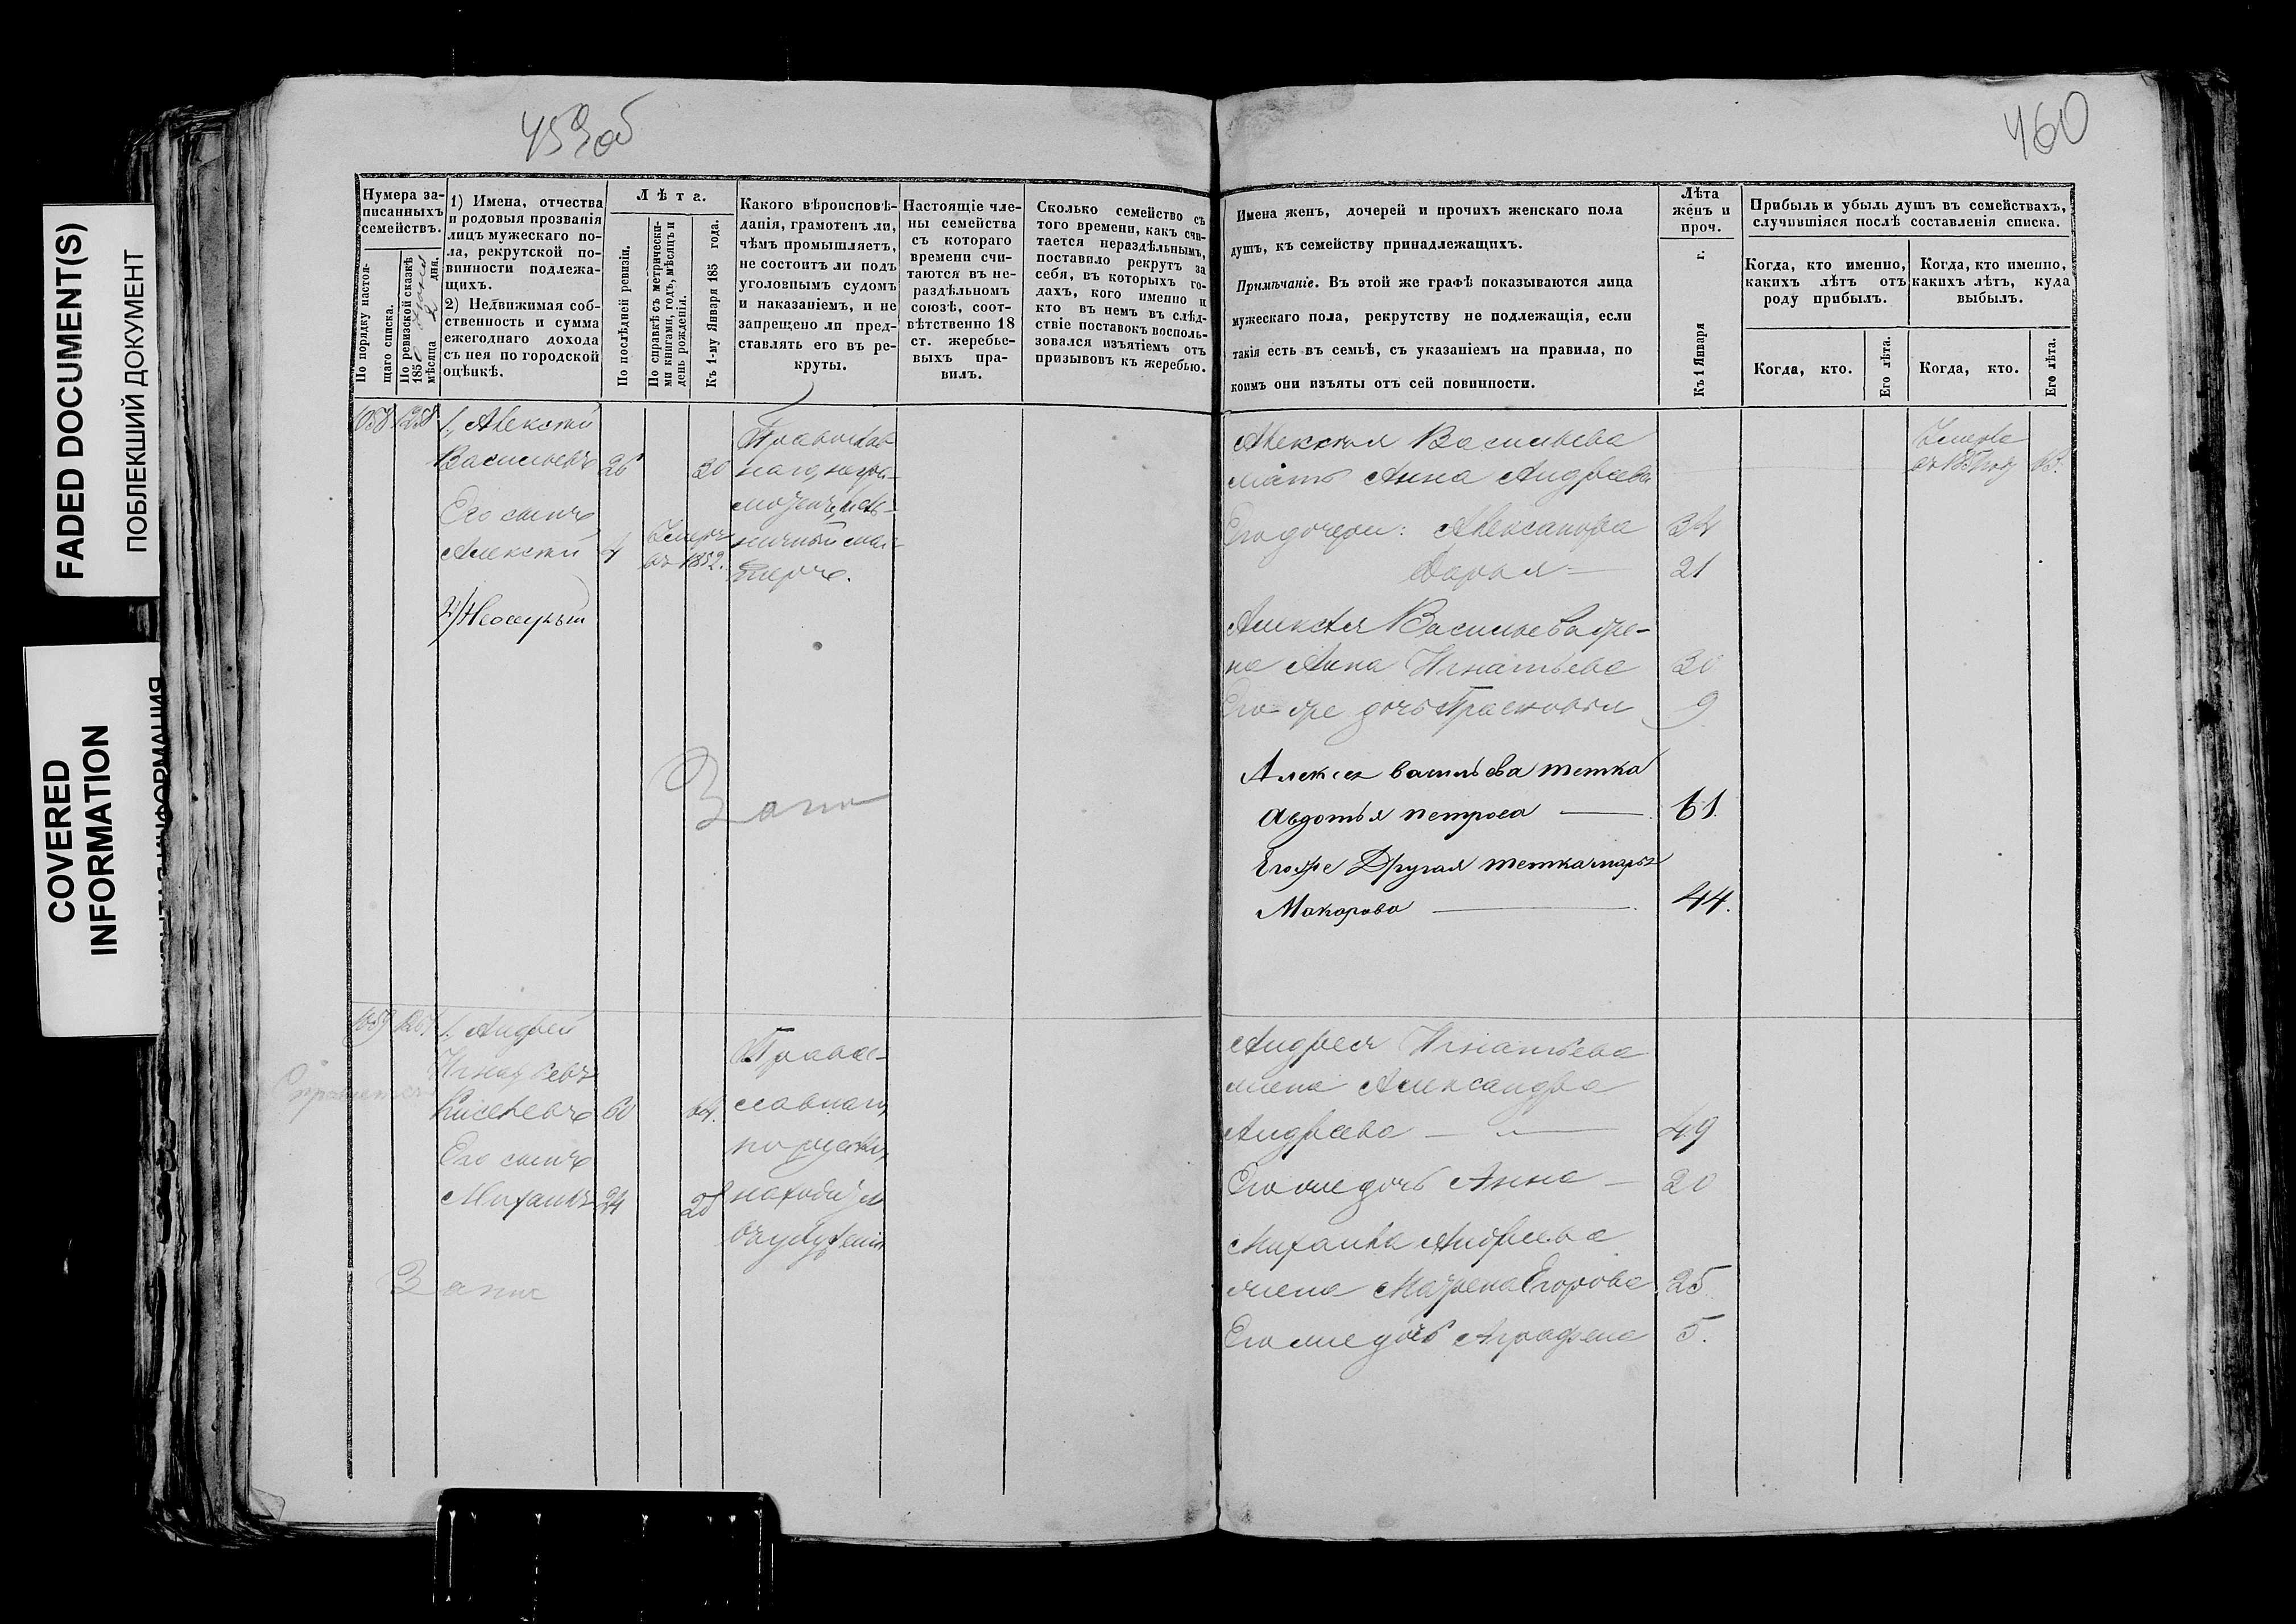 FADED DOCUMENT(S)
ПОБЛЕКШИЙ ДОКУМЕНТ
COVERED
INFORMATION
459 об
460
Нумера за-
писанныхъ
семействъ.
По порядку настоя-
щаго списка.
По ревизской сказкѣ
185
мѣсяца дня.
1) Имена, отчества
и родовыя прозванія
лицъ мужескаго по-
ла, рекрутской по-
винности подлежа-
щихъ.
2) Недвижимая соб-
ственность и сумма
ежегоднаго дохода
съ нея по городской
оцѣнкѣ.
Лѣта.
По послѣдней ревизіи.
По справкѣ съ метрически-
ми книгами, годъ, мѣсяцъ и
день рожденія.
Къ 1-му Января 185 года.
Какого вѣроисповѣ-
данія, грамотенъ ли,
чѣмъ промышляетъ,
не состоитъ ли подъ
уголовнымъ судомъ
и наказаніемъ, и не
запрещено ли пред-
ставлять его въ ре-
круты.
Настоящіе чле-
ны семейства
съ котораго
времени счи-
таются въ не-
раздѣльномъ
союзѣ, соот-
вѣтственно 18
ст. жеребье-
выхъ пра-
вилъ.
Сколько семейство съ
того времени, какъ счи-
тается нераздѣльнымъ,
поставило рекрутъ за
себя, въ которыхъ го-
дахъ, кого именно и
кто въ немъ въ слѣд-
ствіе поставокъ восполь-
зовался изъятіемъ отъ
призывовъ къ жеребью.
Имена женъ, дочерей и прочихъ женскаго пола
душъ, къ семейству принадлежащихъ.
Примѣчаніе. Въ этой же графѣ показываются лица
мужескаго пола, рекрутству не подлежащія, если
такія есть въ семьѣ, съ указаніемъ на правила, по
коимъ они изъяты отъ сей повинности.
Лѣта
женъ и
проч.
Къ 1 Января г.
Прибыль и убыль душъ въ семействахъ,
случившіяся послѣ составленія списка.
Когда, кто именно,
какихъ лѣтъ отъ
роду прибылъ.
Когда, кто именно,
какихъ лѣтъ, куда
выбылъ.
Когда, кто.
Его лѣта.
Когда, кто.
Его лѣта.
1, Алексѣй
Васильевъ 26 30
Его сынъ
Алексѣй 4 Умеръ
въ 1852.
Православ
наго, негра-
мотенъ,
2/
Алексѣя Васильева
мать Анна Андреева
Его дочери: Александра 34
Дарья 21
Алексѣя Васильева же-
на Анна Игнатьева 30
Его-же дочь Прасковья 9
Алексея васильева тетка
Авдотья петрова 61.
Его же Другая тетка марья
Макарова 44.
Умерла
1059 1. Андрей
Игнатьевъ
Киселевъ 60 64.
Его сынъ
Михаилъ 24 28
Правос-
лавнаго,
Андрея Игнатьева
жена Александра
Андреева 49
Его же дочь Анна 20
Михаила Андреева
жена Матрена Егорова 25
Его же дочь Аграфена 5.